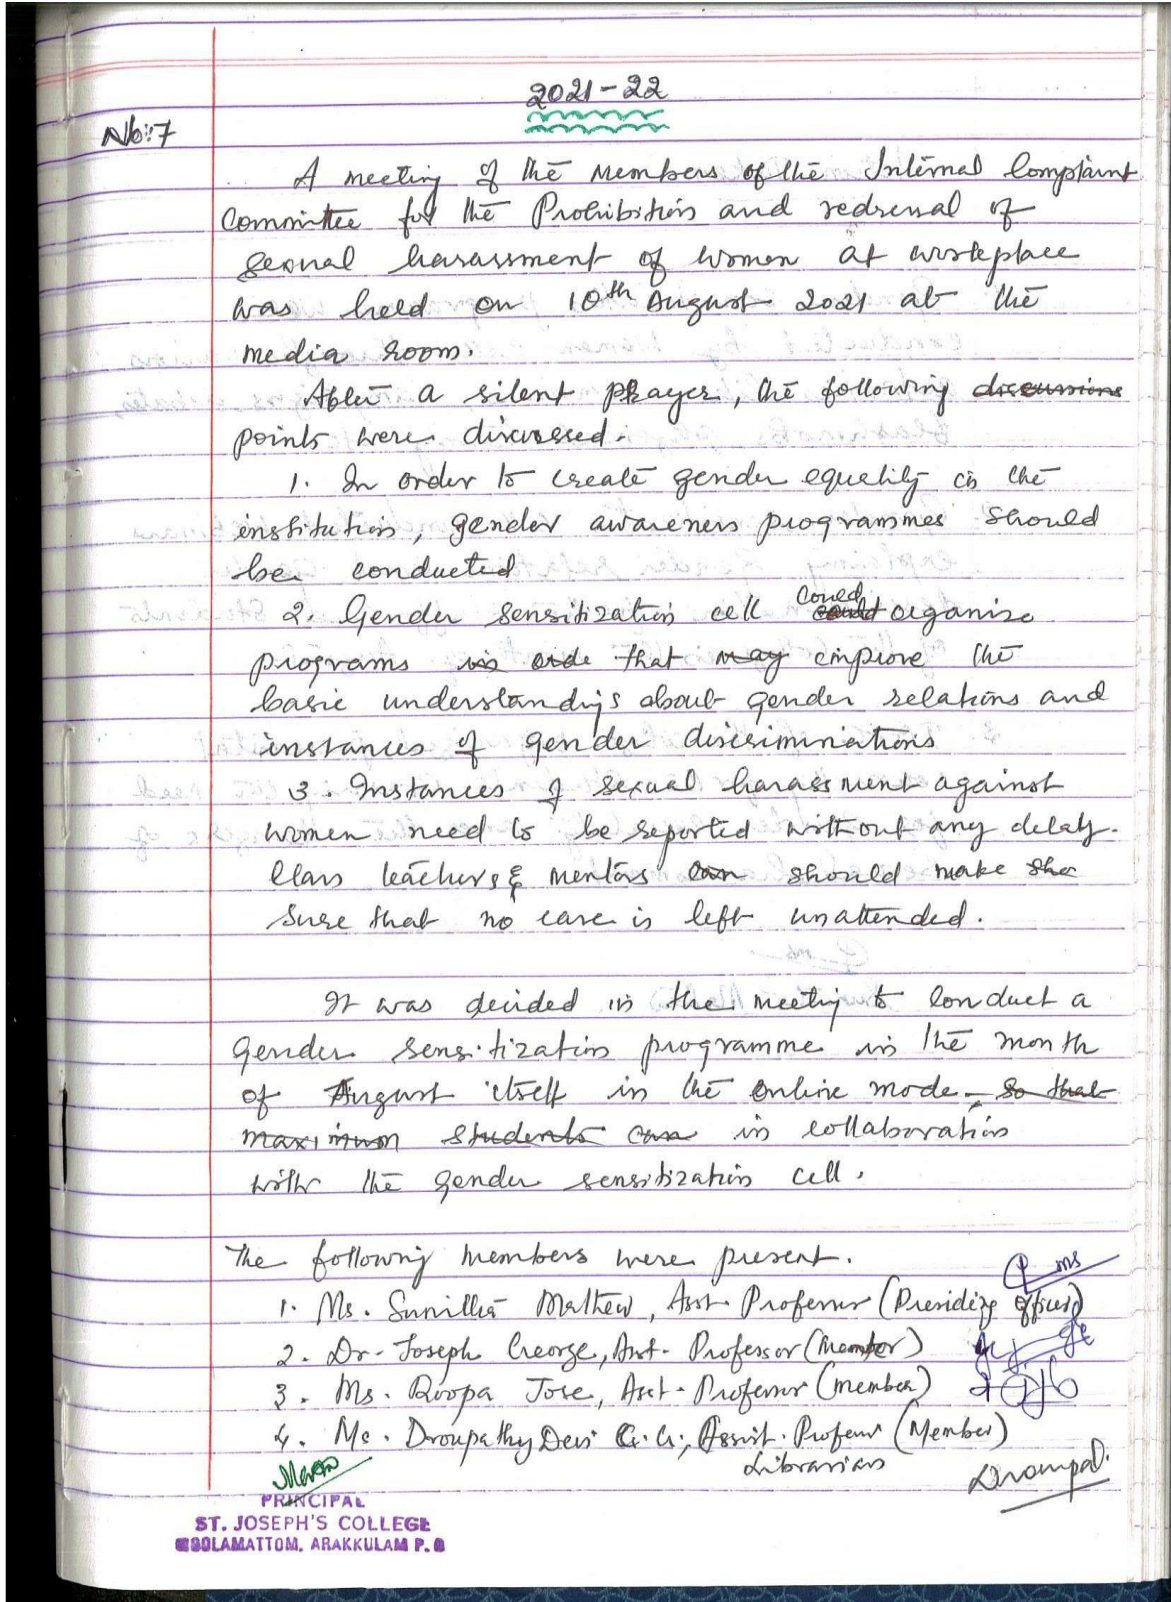 2021-22
No:7
A meeting of the Members of the Internal Complaint
Committee for the Prohibition and redressal of
sexual harassment of women at workplace
was held on 10th August 2021 at the
media room.
After a silent prayer, the following discussions
points were discussed.
1. In order to create gender equality in the
institution, gender awareness programmes should
be conducted
2. Gender sensitization cell could could organize
programs in orde that may improve the
basic understandings about gender relations and
instances of gender discriminations
3. Instances of sexual harassment against
women need to be reported without any delay.
Class teachers & mentors can should make she
sure that no case is left unattended.
It was decided in the meeting to conduct a
gender sensitization programme in the month
of August itself in the online mode so that
maximum students can in collaboration
with the gender sensitization cell.
The following members were present.
1. Ms. Sunitha Mathew, Asst. Professor (Presiding Officer)
2. Dr. Joseph George, Asst. Professor (Member)
3. Ms. Roopa Jose, Asst. Professor (Member)
4. Ms. Droupathy Devi G.G., Assist. Professor (Member)
Librarian
Droupad.
PRINCIPAL
ST. JOSEPH'S COLLEGE
MOOLAMATTOM, ARAKKULAM P.O